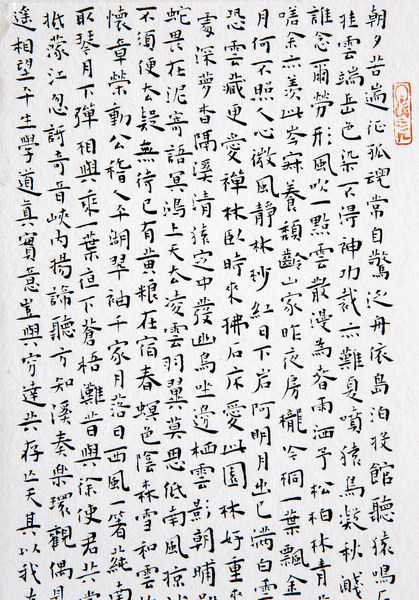 朝夕苦遄征孤魂常自驚泛舟依島泊投館聽猿鳴石
挂雲端岳色染不得神功裁亦難夏噴猿鳥凝秋濺
誰念爾勞形風吹一點雲散漫為春雨洒予松柏林青
余亦羨此岑寂養頹齡山家昨夜房櫳冷桐一葉飄金
月何不照人心微風靜林杪紅日下岩阿明月出已滿白雲
恐雲藏更愛禪林臥時來拂石床愛此園林好重來
深夢杳隔溪清猿定中發幽鳥坐邊栖雲影朝晡
蛇畏在泥寄語冥鴻上天去凌雲羽翼莫思低南風掠
不須便去疑無待已有黄粮在宿舂螟色陰森雪和雲
懷章榮動公稽平湖翠袖千家月落日西風一箸蒓南
取琴月下彈相與乘一葉夜下蒼梧灘昔與徐使君共
抵濛江忽訝奇音峽内揚諦聽方知溪奏樂環觀偶
遙相望平生學道真實意豈與窮達共存亡天其以我